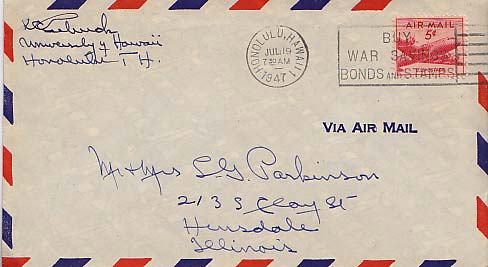 University of Hawaii
Honolulu T H.
HONOLULU, HAWAII
JUL 19
7 30 AM
1947
BUY
WAR SAVINGS
BONDS AND STAMPS
AIR MAIL
5¢
VIA AIR MAIL
Mr & Mrs L G. Parkinson
213 S Clay St
Hinsdale
Illinois